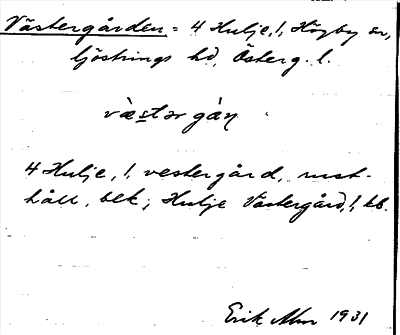 Västergården = 4 Hulje, !, Högby sn,
Göstrings hd, Österg. l.
väстər gàn
4 Hulje, !, vestergård, rust-
håll, bek; Hulje Västergård, !, kb.
Erik Alm 1931